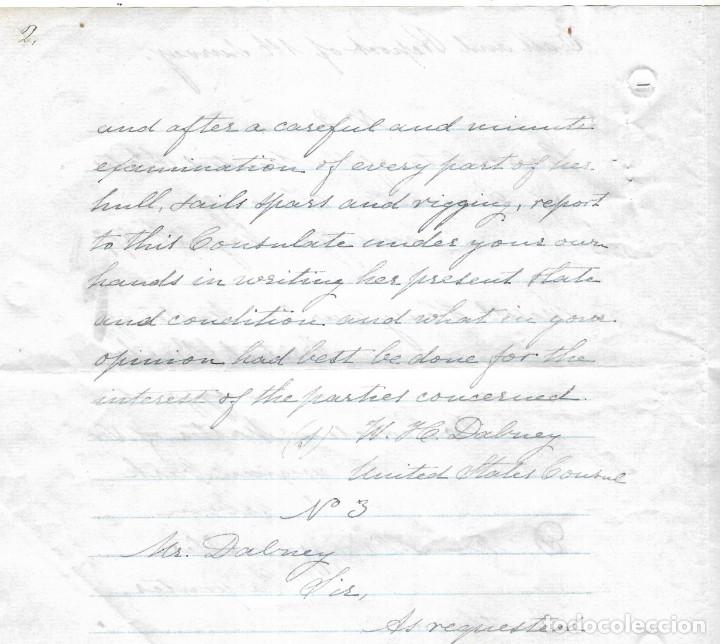 2.
and after a careful and minute
examination of every part of her
hull, sails spars and rigging, report
to this Consulate under your own
hands in writing her present state
and condition and what in your
opinion had best be done for the
interest of the parties concerned.
(s) W. H. Dabney
United States Consul
No 3
Mr. Dabney
Sir,
As requested
todocoleccion.net